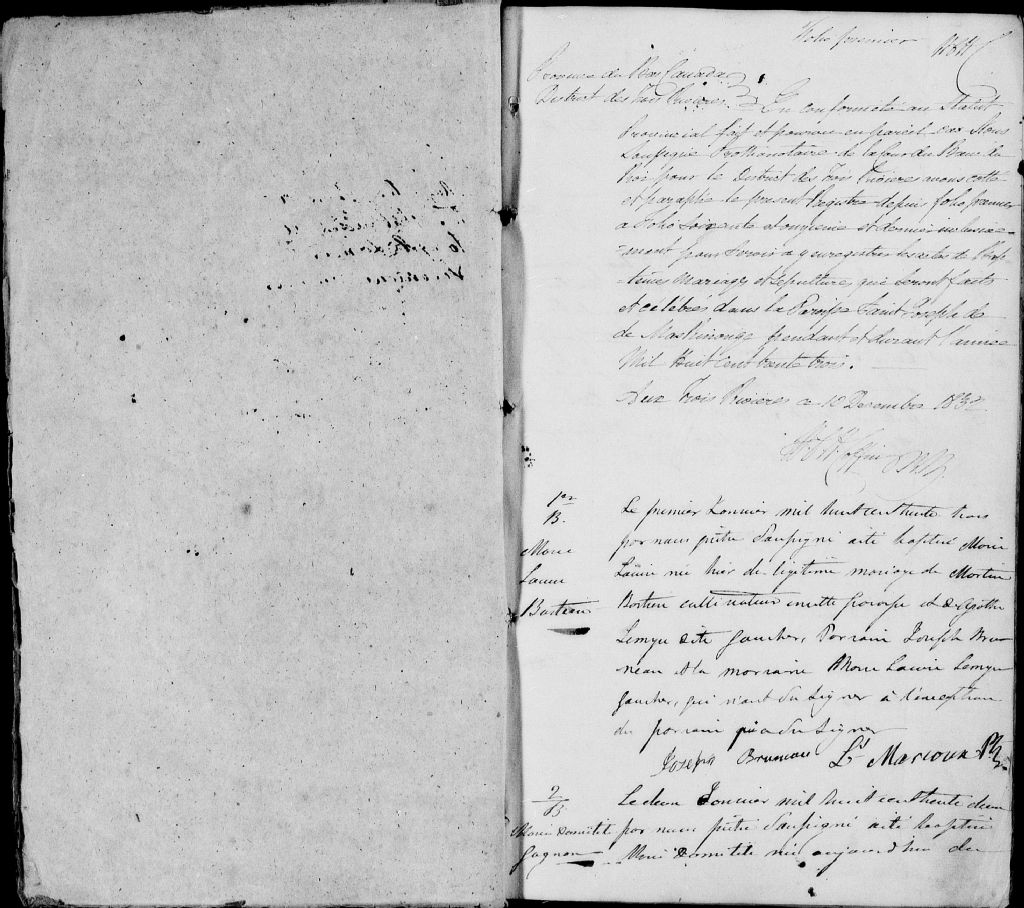 Folio premier
Province du Bas Canada
District des Trois Rivieres. En conformité au Statut
Provincial fait et pourvu en pareil cas Nous
Soussigné Prothonotaire de la Cour du Banc du
Roi pour le District des Trois Rivieres avons cotté
et paraphé le present Registre depuis folio premier
a folio soixante et onzieme et dernier inclusive-
-ment pour servir a y enregistrer les actes de Bap-
têmes Mariages et Sépultures qui seront faits
et célébrés dans la Paroisse Saint Joseph de
de Maskinongé pendant et durant l'année
Mil huit cent trente trois.
Aux Trois Rivieres a 10 Decembre 1832
1er
B.
Marie
Laurie
Bastien
Le premier Janvier mil huit cent trente trois
par nous prêtre Soussigné a été baptisé Marie
Laurie née hier de légitime mariage de
Bastien cultivateur en cette paroisse et d'Agathe
Lemyre dite Gaucher, Parrain Joseph Bru
neau et la marraine Marie Laurie Lemyre
Gaucher, qui n'ont su signer à l'exception
du parrain qui a su signer
Joseph Bruneau Ls Marcoux Ptre
2
B
Marie Domitile
Gagnon
Le deux Janvier mil huit cent trente
par nous prêtre Soussigné a été baptisé
Marie Domitile née aujourd'hui du